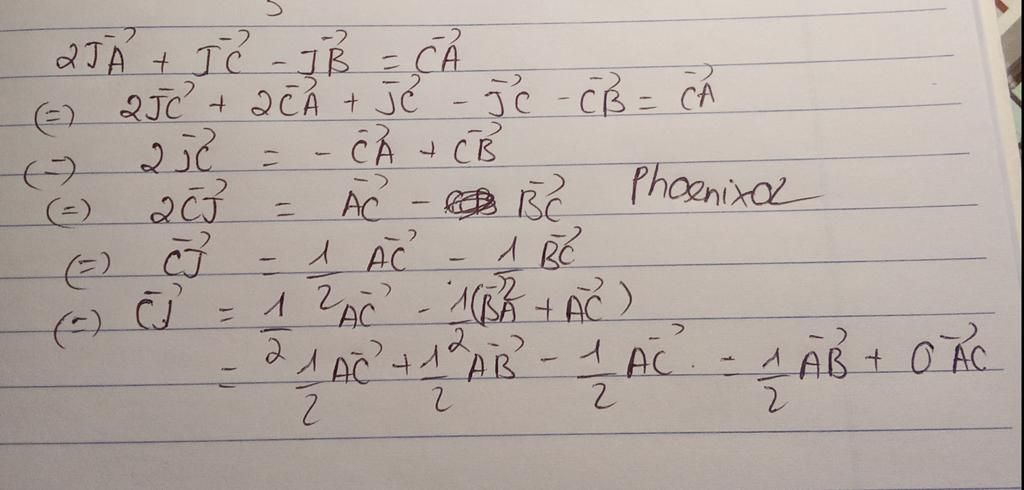 2JA⃗ + JC⃗ - JB⃗ = CA⃗
(=) 2JC⃗ + 2CA⃗ + JC⃗ - JC⃗ - CB⃗ = CA⃗
(=) 2JC⃗ = - CA⃗ + CB⃗
(=) 2CJ⃗ = AC⃗ - BC⃗ Phoenixoz
(=) CJ⃗ = 1/2 AC⃗ - 1/2 BC⃗
(=) CJ⃗ = 1/2 AC⃗ - 1/2(BA⃗ + AC⃗)
= 1/2 AC⃗ + 1/2 AB⃗ - 1/2 AC⃗ = 1/2 AB⃗ + 0 AC⃗